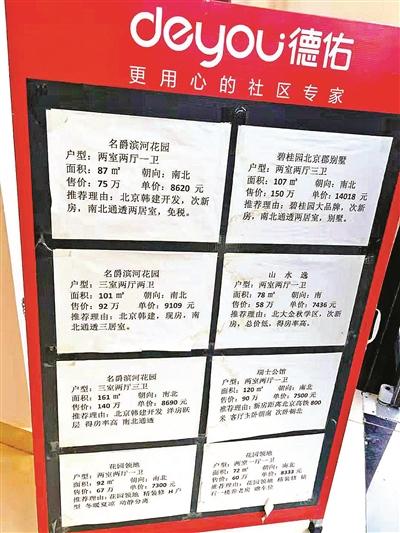 deyou德佑
更用心的社区专家
名爵滨河花园
户型：两室两厅一卫
面积：87㎡ 朝向：南北
售价：75万 单价：8620元
推荐理由：北京韩建开发，次新
房，南北通透两居室，免税。
碧桂园北京郡别墅
户型：两室两厅三卫
面积：107㎡ 朝向：南北
售价：150万 单价：14018元
推荐理由：碧桂园大品牌，次新
房，南北通透两居室，别墅。
名爵滨河花园
户型：三室两厅两卫
面积：101㎡ 朝向：南北
售价：92万 单价：9109元
推荐理由：北京韩建，现房，南
北通透三居室。
山水逸
户型：两室两厅一卫
面积：78㎡ 朝向：南
售价：58万 单价：7436元
推荐理由：北大金秋学区，次新
房，总价低，得房率高。
名爵滨河花园
户型：三室两厅三卫
面积：161㎡ 朝向：南北
售价：140万 单价：8690元
推荐理由：北京韩建开发 洋房跃
层 得房率高 南北通透
瑞士公馆
户型：两室两厅一卫
面积：120㎡ 朝向：南北
售价：90万 单价：7500元
推荐理由：新房距离北京高铁800
米 客厅主卧朝南 次卧朝北
花园领地
户型：两室两厅一卫
面积：92㎡ 朝向：南北
售价：67万 单价：7300元
推荐理由：花园领地 精装修 H户
型 冬暖夏凉 动静分离
花园领地
户型：两室一厅一卫
面积：72㎡ 朝向：南北
售价：60万 单价：8333元
推荐理由：花园领地 精装修 钻
石一楼养老房 赠车位